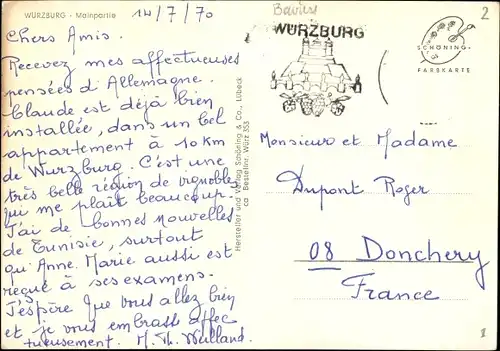 WÜRZBURG - Mainpartie
14/7/70
Chers Amis.
Recevez mes affectueuses
pensées d'Allemagne.
Claude est déjà bien
installée, dans un bel
appartement à 10 km
de Wurzburg. C'est une
très belle région de vignobles
qui me plaît beaucoup.
J'ai de bonnes nouvelles
de Tunisie, surtout
qu'Anne Marie aussi est
reçue à ses examens.
J'espère que vous allez bien
et je vous embrasse affec
tueusement. M. Th. Weilland.
Hersteller und Verlag Schöning & Co., Lübeck
ca Bestellnr. Würz 355
WÜRZBURG
SCHÖNING-
FARBKARTE
2
Monsieur et Madame
Dupont Roger
08 Donchery
France
1